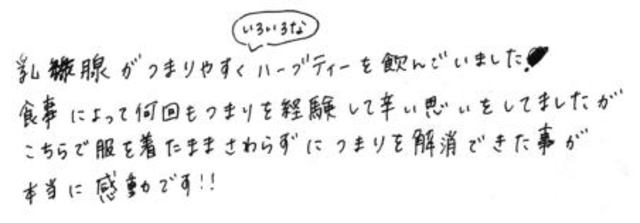 いろいろな
乳腺がつまりやすくハーブティーを飲んでいました
食事によって何回もつまりを経験して辛い思いをしてましたが
こちらで服を着たままさわらずにつまりを解消できた事が
本当に感動です!!